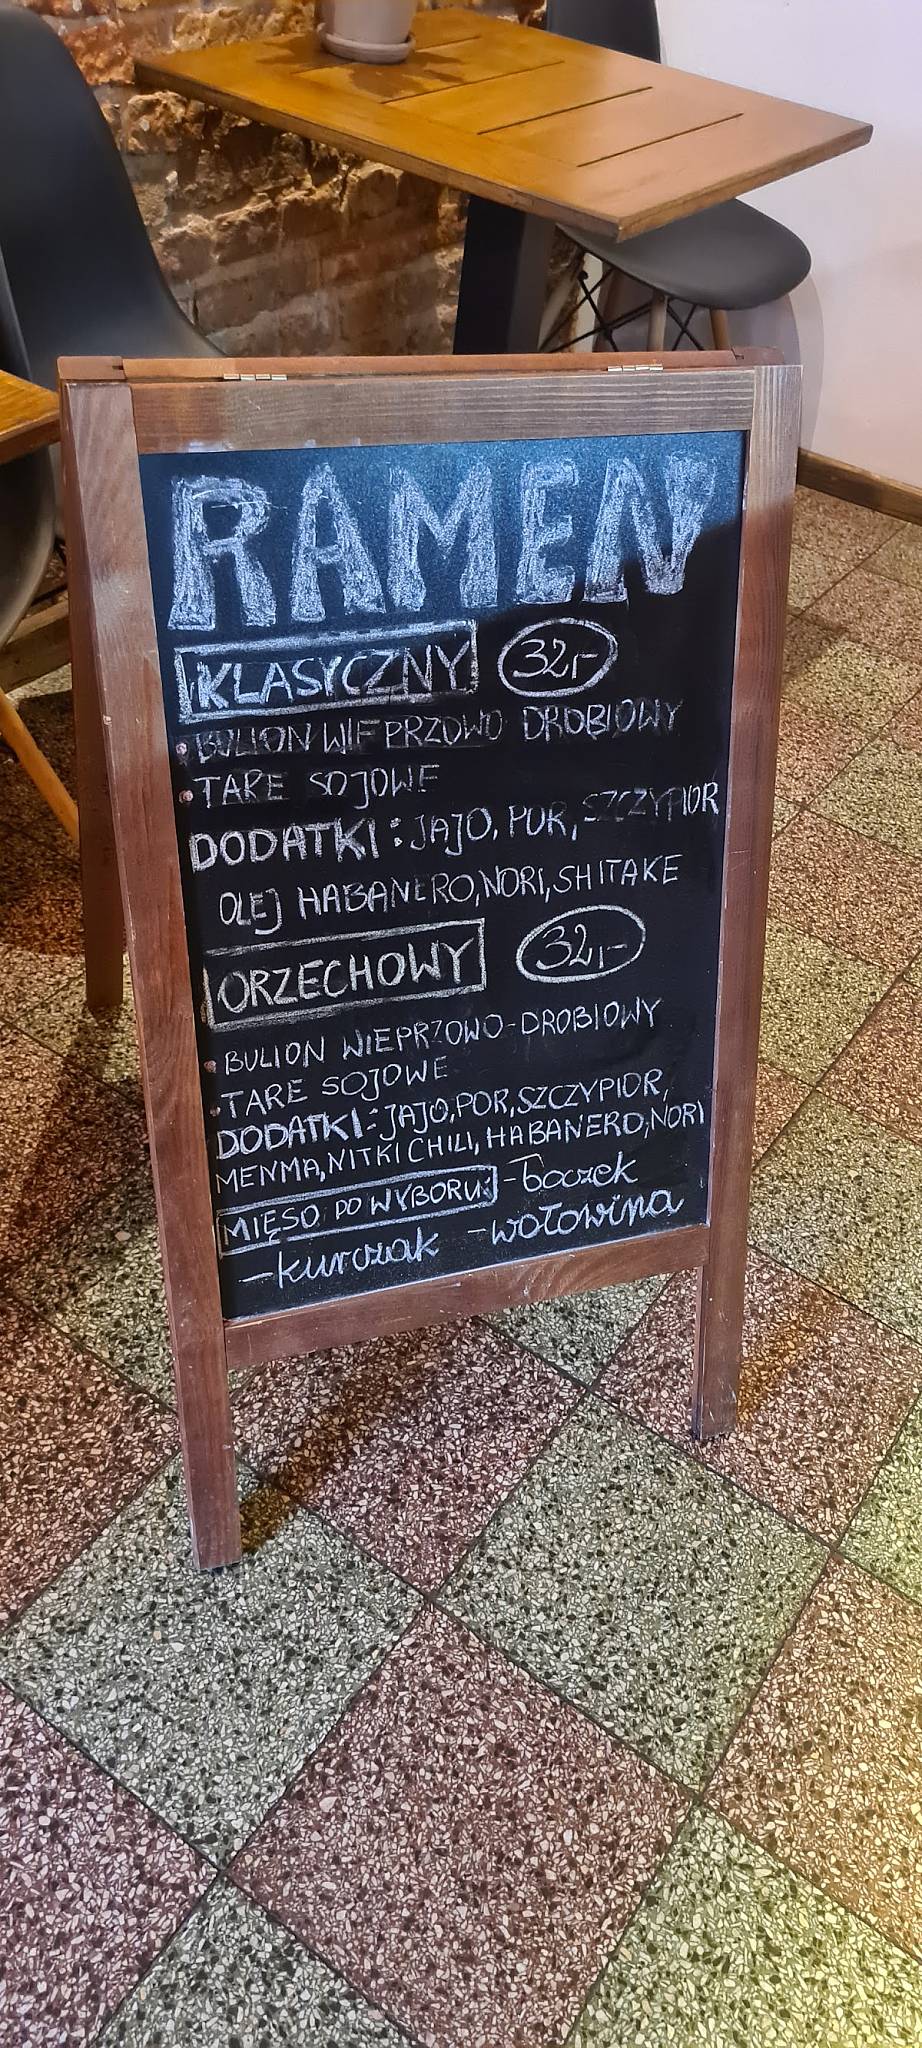 RAMEN
KLASYCZNY 32,-
• BULION WIEPRZOWO DROBIOWY
• TARE SOJOWE
DODATKI: JAJO, POR, SZCZYPIOR
OLEJ HABANERO, NORI, SHITAKE
ORZECHOWY 32,-
• BULION WIEPRZOWO-DROBIOWY
• TARE SOJOWE
DODATKI: JAJO, POR, SZCZYPIOR,
MENMA, NITKI CHILI, HABANERO, NORI
MIĘSO DO WYBORU: - boczek
- kurczak - wołowina